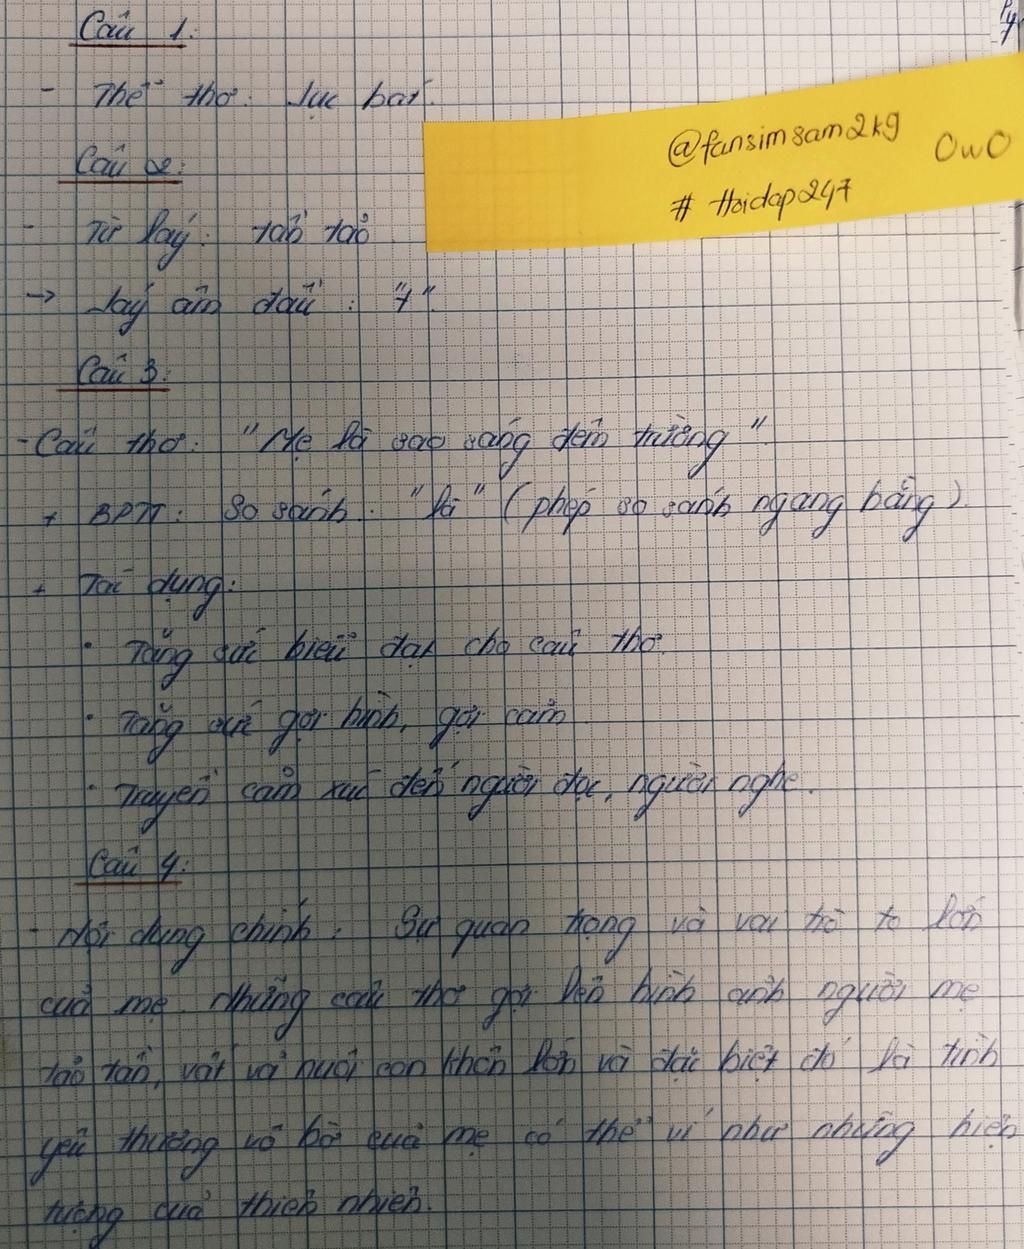 Câu 1:
- Thể thơ: lục bát.
@fansimsam2kg OwO
# Hoidap247
Câu 2:
- Từ láy: tần tảo
→ Láy âm đầu: "t".
Câu 3:
- Câu thơ: "Mẹ là sao sáng đêm trường"
+ BPTT: So sánh: "là" (phép so sánh ngang bằng).
+ Tác dụng:
• Tăng sức biểu đạt cho câu thơ.
• Tăng sức gợi hình, gợi cảm.
• Truyền cảm xúc đến người đọc, người nghe.
Câu 4:
- Nội dung chính: Sự quan trọng và vai trò to lớn
của mẹ. Những câu thơ gợi lên hình ảnh người mẹ
tảo tần, vất vả nuôi con khôn lớn và đặc biệt đó là tình
yêu thương vô bờ của mẹ có thể ví như những hiện
tượng của thiên nhiên.